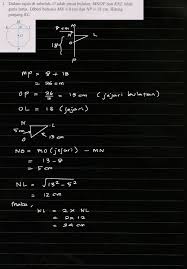 1. Dalam rajah di sebelah, O ialah pusat bulatan. MNOP dan KNL ialah
garis lurus. Diberi bahawa MN = 8 cm dan NP = 18 cm. Hitung
panjang KL.
8 cm M
N
L
18
O
P
MP = 8 + 18
= 26 cm
OP = 26/2 = 13 cm (jejari bulatan)
OL = 13 (jejari)
N L
5 cm
13 cm
O
NO = MO (jejari) - MN
= 13 - 8
= 5 cm
NL = √13² - 5²
= 12 cm
maka,
KL = 2 × NL
= 2 × 12
= 24 cm